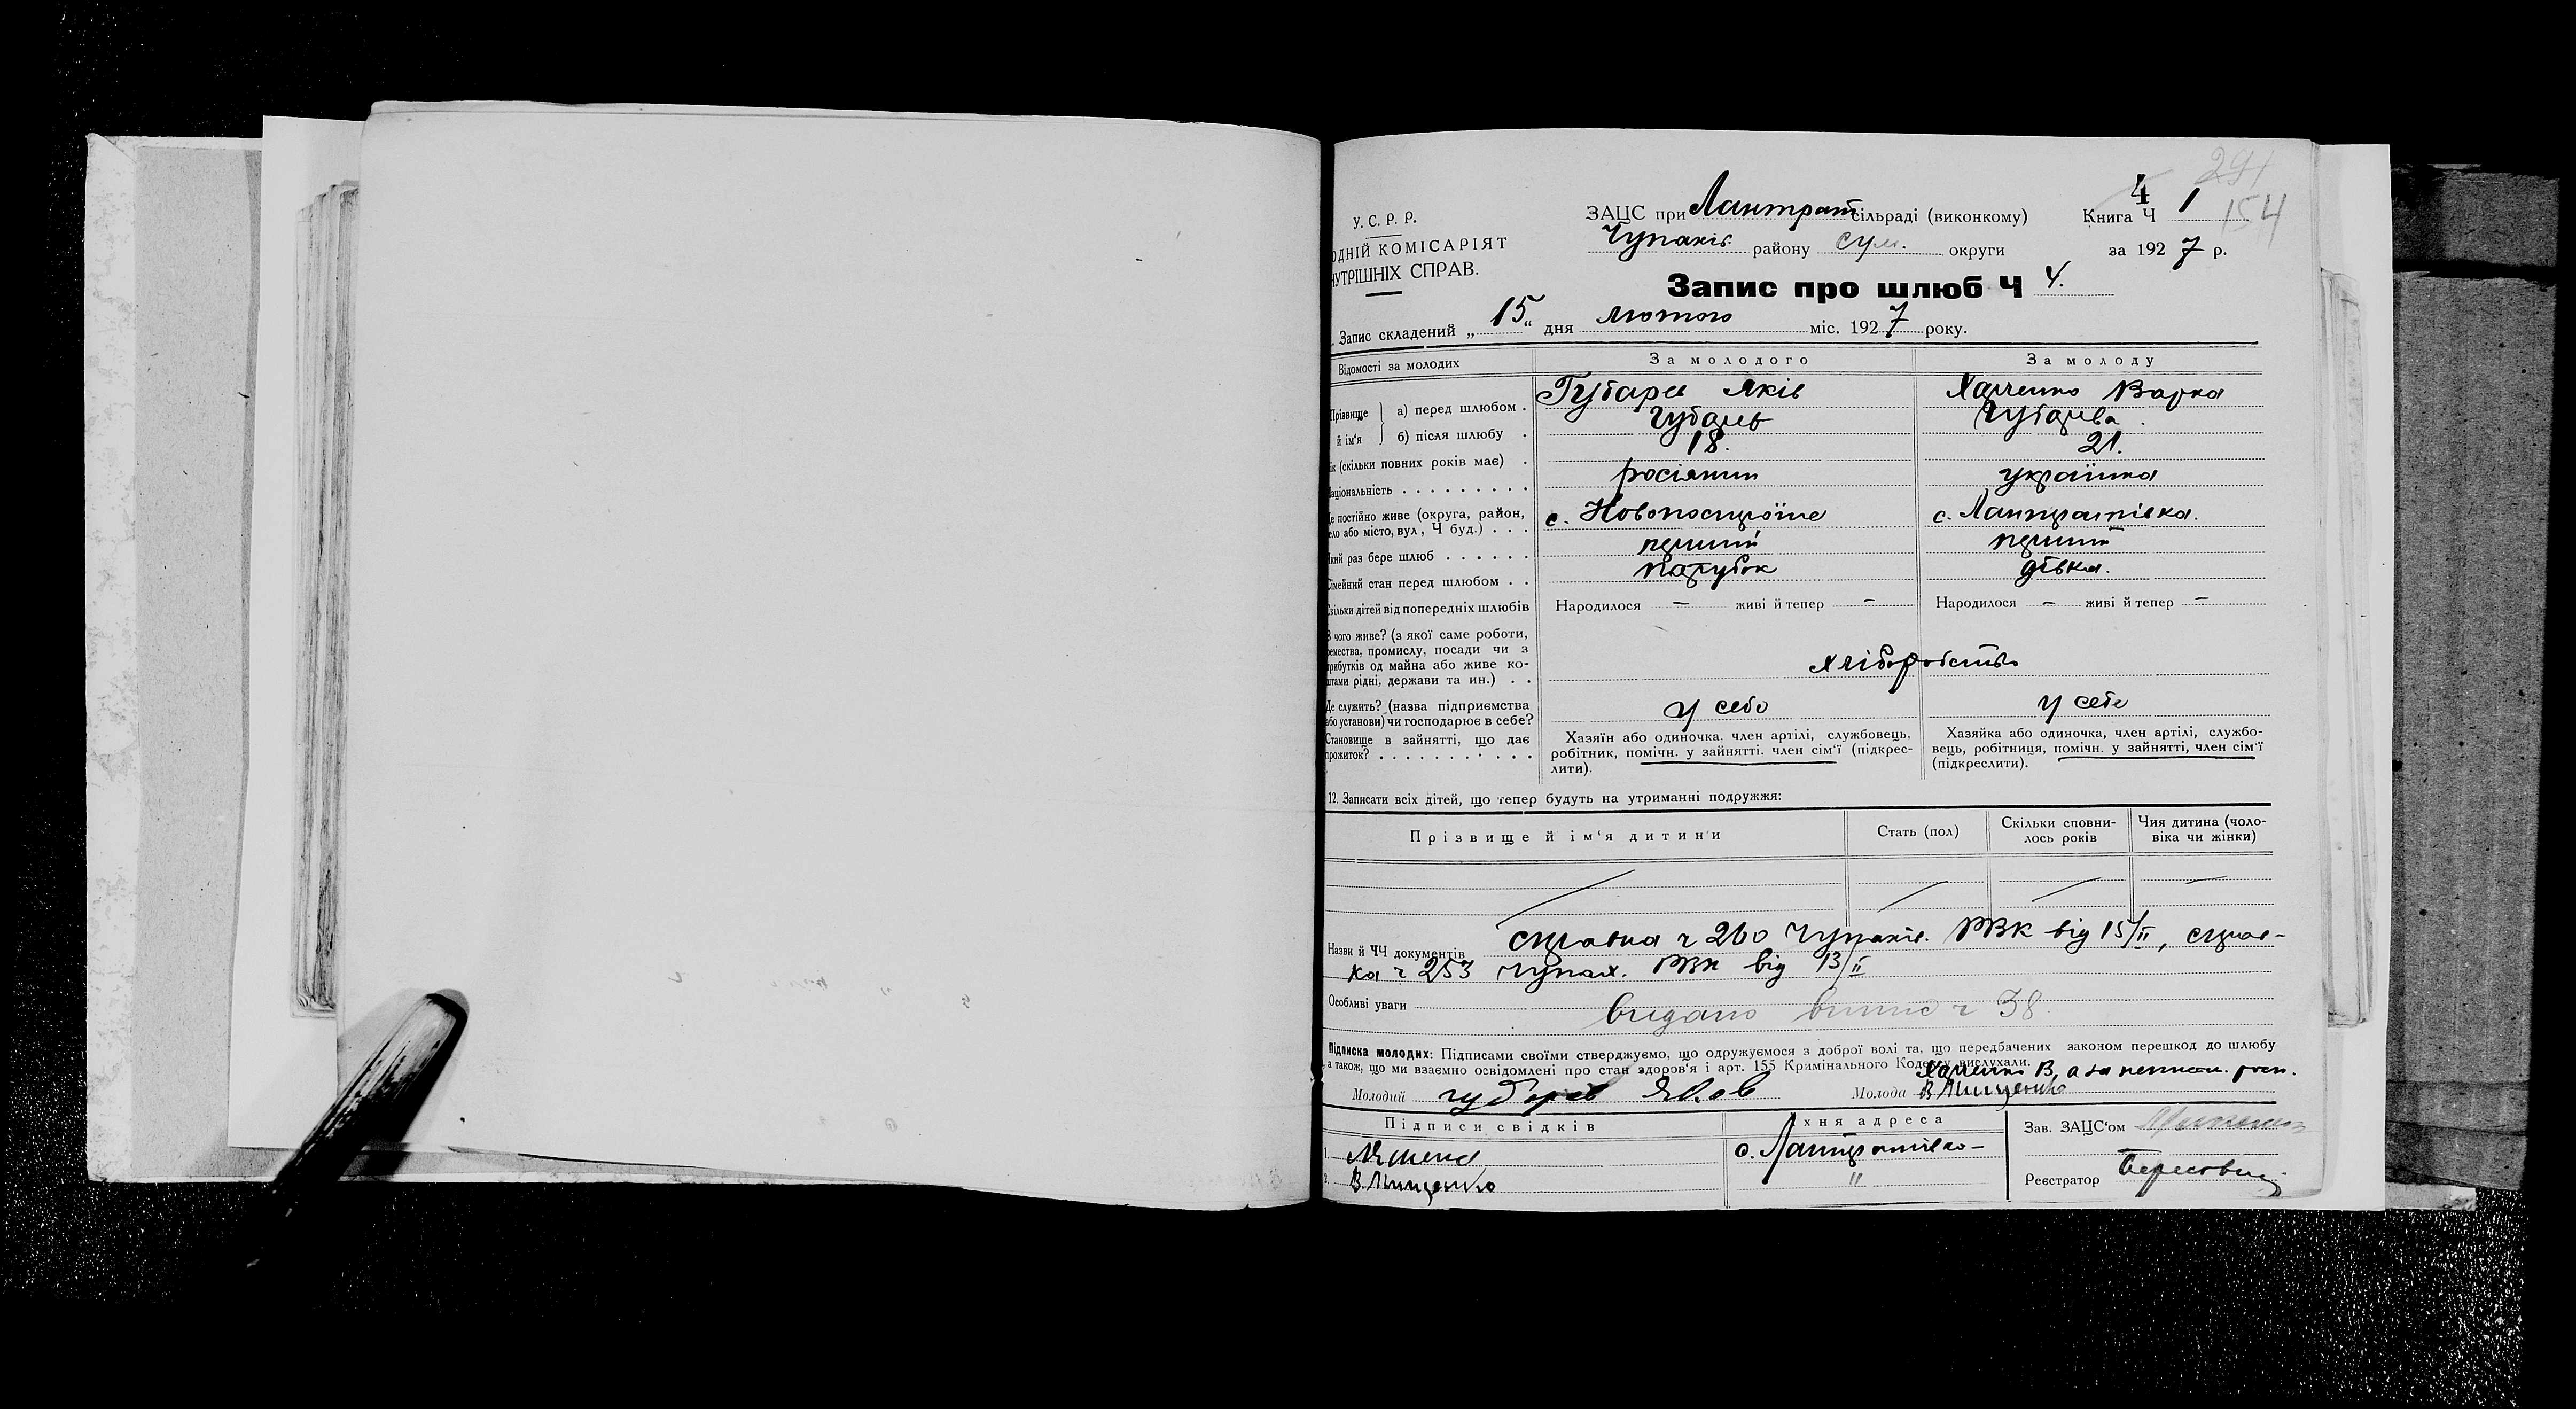 4
291
У. С. Р. Р.
ЗАЦС при Лантрат сільраді (виконкому)
Книга Ч 1
154
ОДНІЙ КОМІСАРІЯТ
Чупахів. району сум. округи
за 1927 р.
НУТРІШНІХ СПРАВ.
Запис про шлюб Ч 4.
Запис складений „15" дня лютого міс. 1927 року.
Відомості за молодих
За молодого
За молоду
Прізвище й ім'я
а) перед шлюбом
Губарев Яків
Харченко Варка
б) після шлюбу
Губарев
Губарева
ік (скільки повних років має)
18.
21.
аціональність
росіянин
українка
е постійно живе (округа, район,
ело або місто, вул, Ч буд.)
с. Новопостроїне
с. Лантратівка.
кий раз бере шлюб
перший
перший
імейний стан перед шлюбом
парубок
дівка.
кільки дітей від попередніх шлюбів
Народилося — живі й тепер —
Народилося — живі й тепер —
З чого живе? (з якої саме роботи,
ремества, промислу, посади чи з
прибутків од майна або живе ко-
штами рідні, держави та ин.)
хліборобство
Де служить? (назва підприємства
або установи) чи господарює в себе?
у себе
у себе
Становище в зайнятті, що дає
прожиток?
Хазяїн або одиночка. член артілі, службовець,
робітник, помічн. у зайнятті. член сім'ї (підкрес-
лити).
Хазяйка або одиночка, член артілі, службо-
вець, робітниця, помічн. у зайнятті, член сім'ї
(підкреслити).
12. Записати всіх дітей, що тепер будуть на утриманні подружжя:
Прізвище й ім'я дитини
Стать (пол)
Скільки сповни-
лось років
Чия дитина (чоло-
віка чи жінки)
Назви й ЧЧ документів
справка ч 260 Чупахів. РВК від 15/II, справ-
ка ч 253 чупах. РВК від 13/II
Особливі уваги
видано випис ч 38.
Підписка молодих: Підписами своїми стверджуємо, що одружуємося з доброї волі та, що передбачених законом перешкод до шлюбу
, а також, що ми взаємно освідомлені про стан здоров'я і арт. 155 Кримінального Кодексу вислухали.
Харченко В, а за неписм. росп.
Молодий губарев Яков
Молода В Мищенко
Підписи свідків
їхня адреса
Зав. ЗАЦС'ом
1.
с. Лантратівка
2. В Мищенко
"
Реєстратор